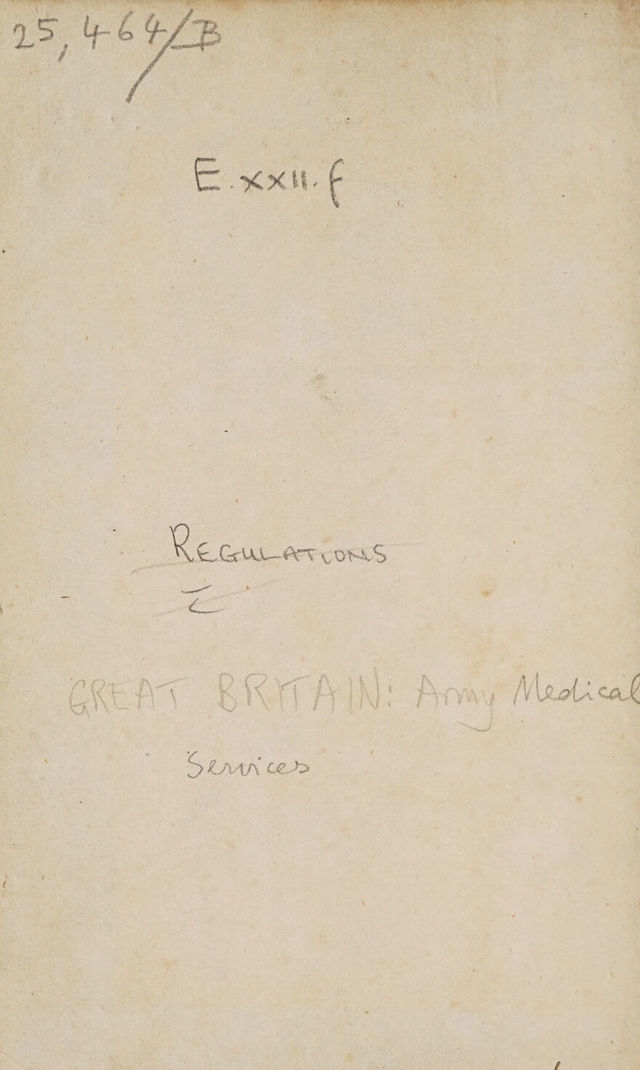 25,464/B
E.xxii.f
REGULATIONS
GREAT BRITAIN: Army Medical
Services